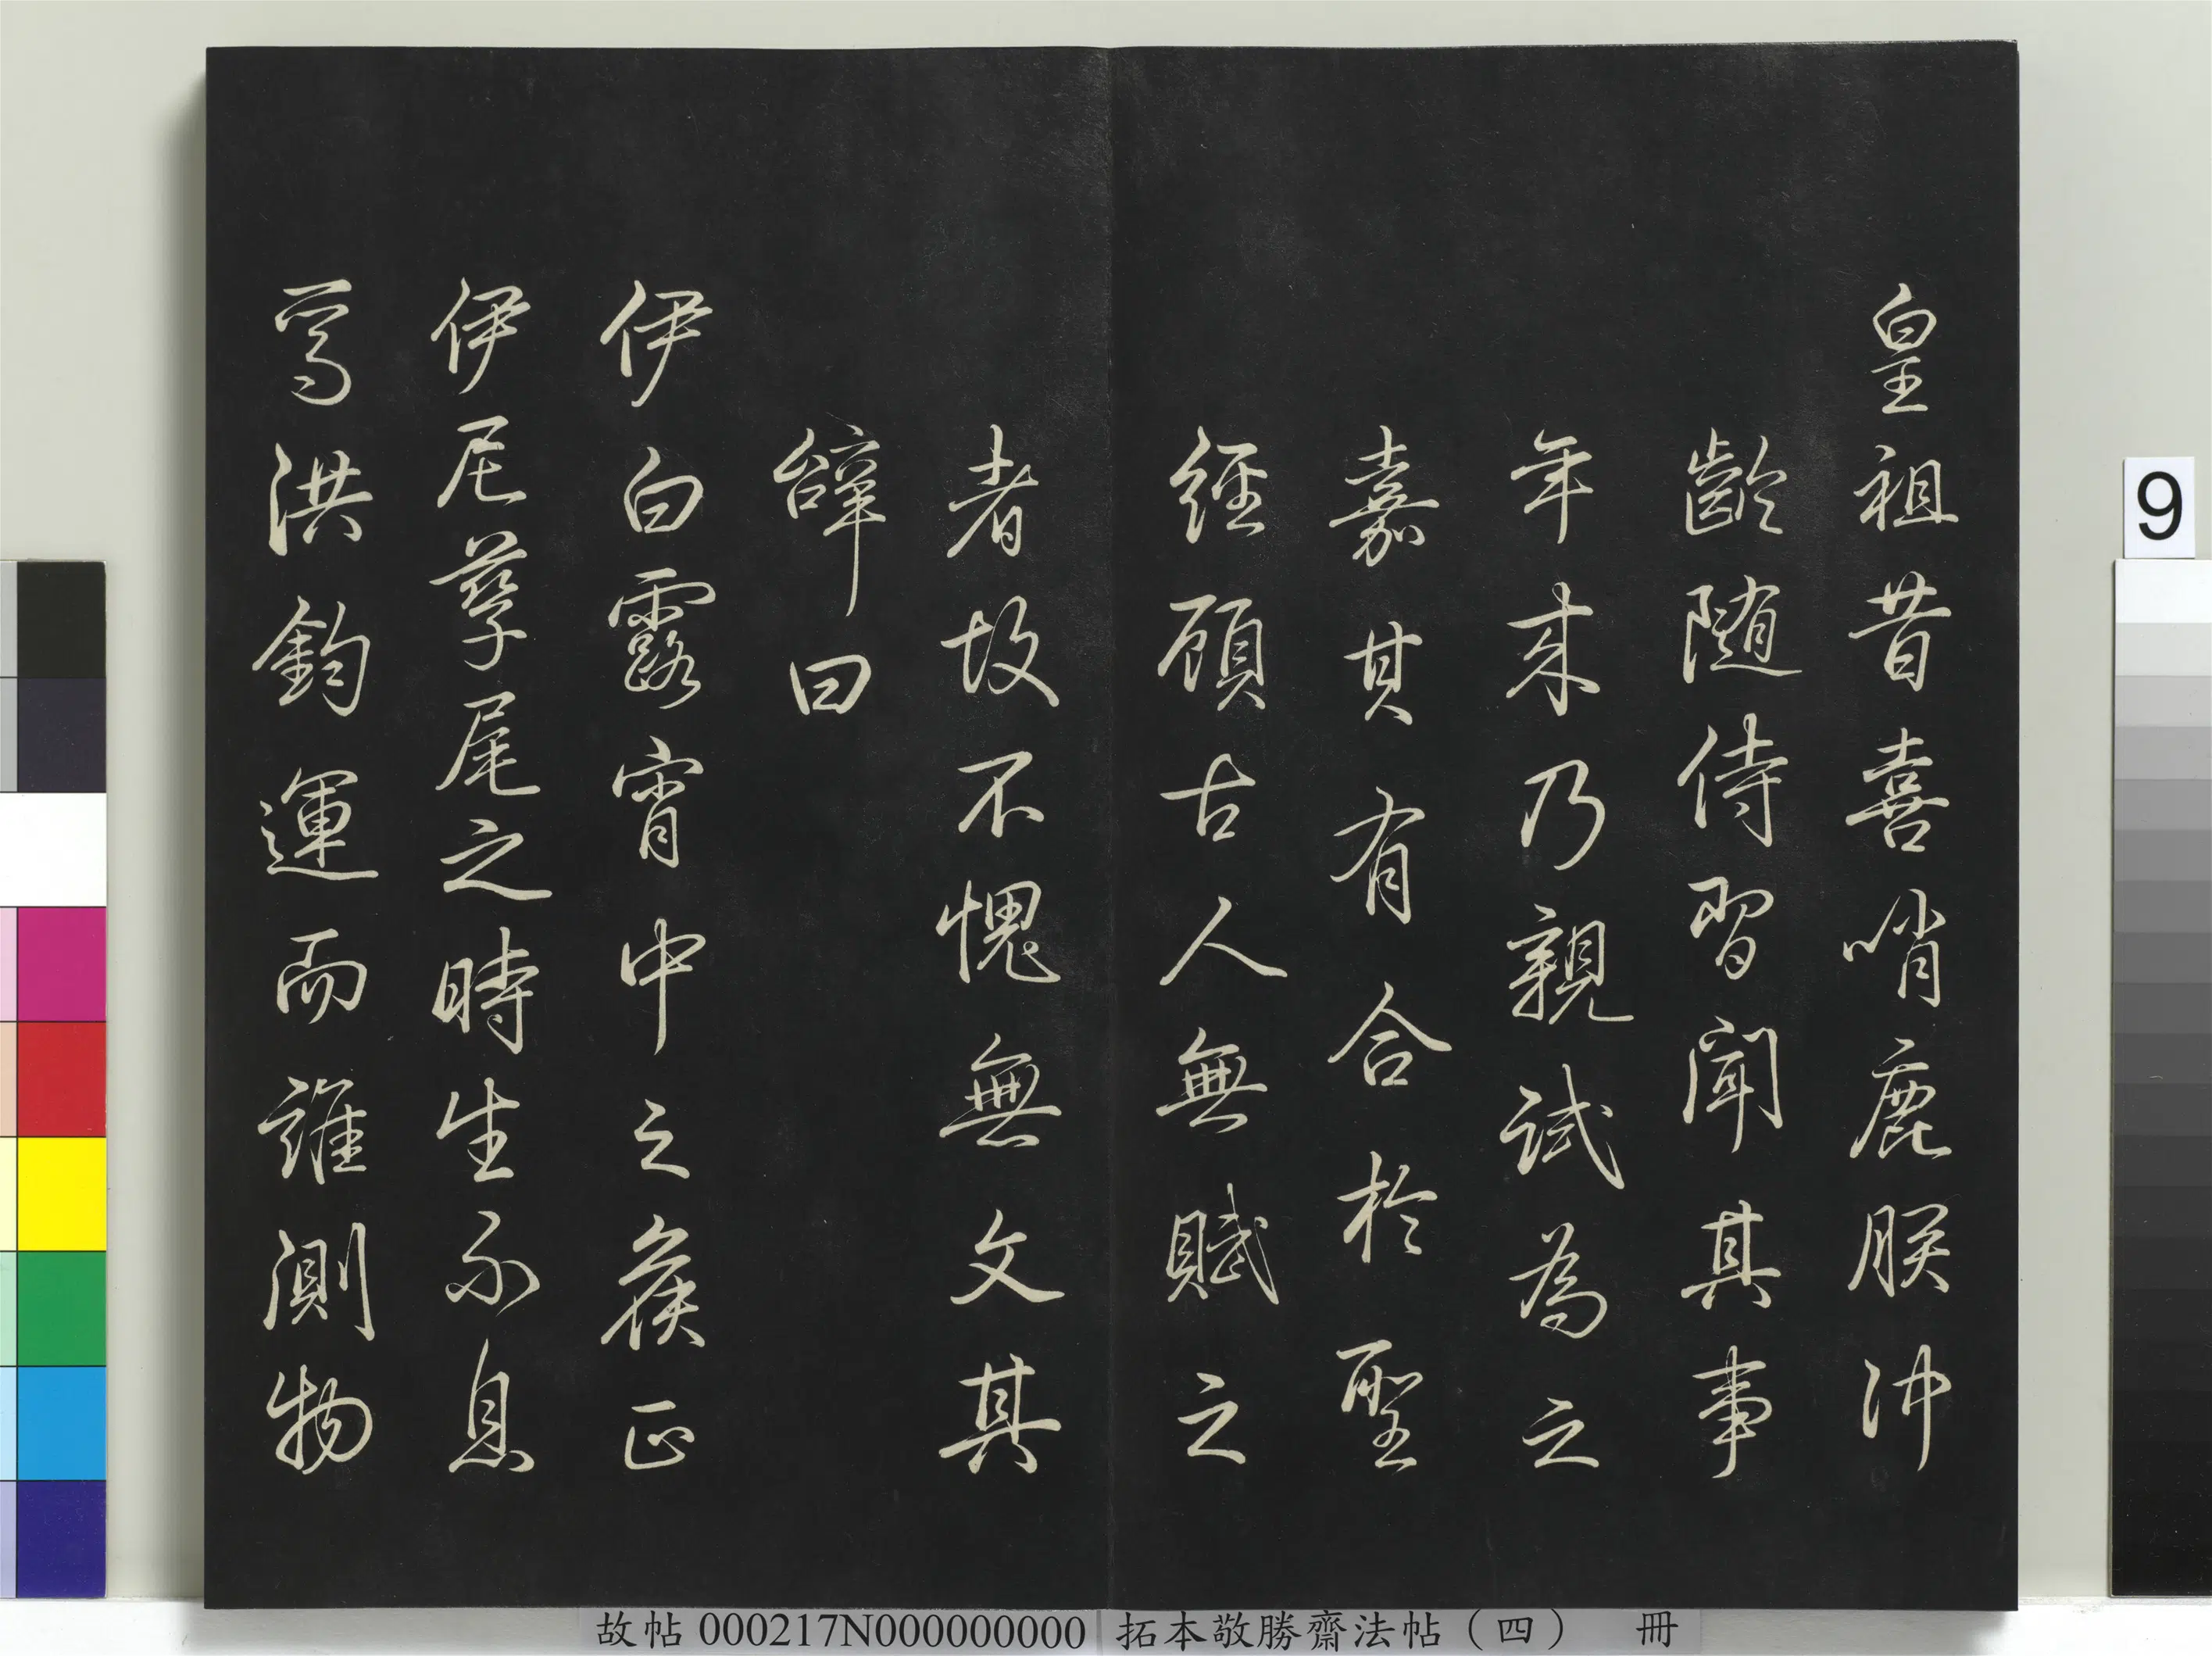 皇祖昔喜哨鹿朕沖
齡隨侍習聞其事
年來乃親試為之
嘉其有合於聖
經顧古人無賦之
者故不愧無文其
辭曰
伊白露宵中之候正
伊尼孳尾之時生不息
焉洪鈞運而誰測物
9
故帖000217N000000000 拓本敬勝齋法帖（四） 冊